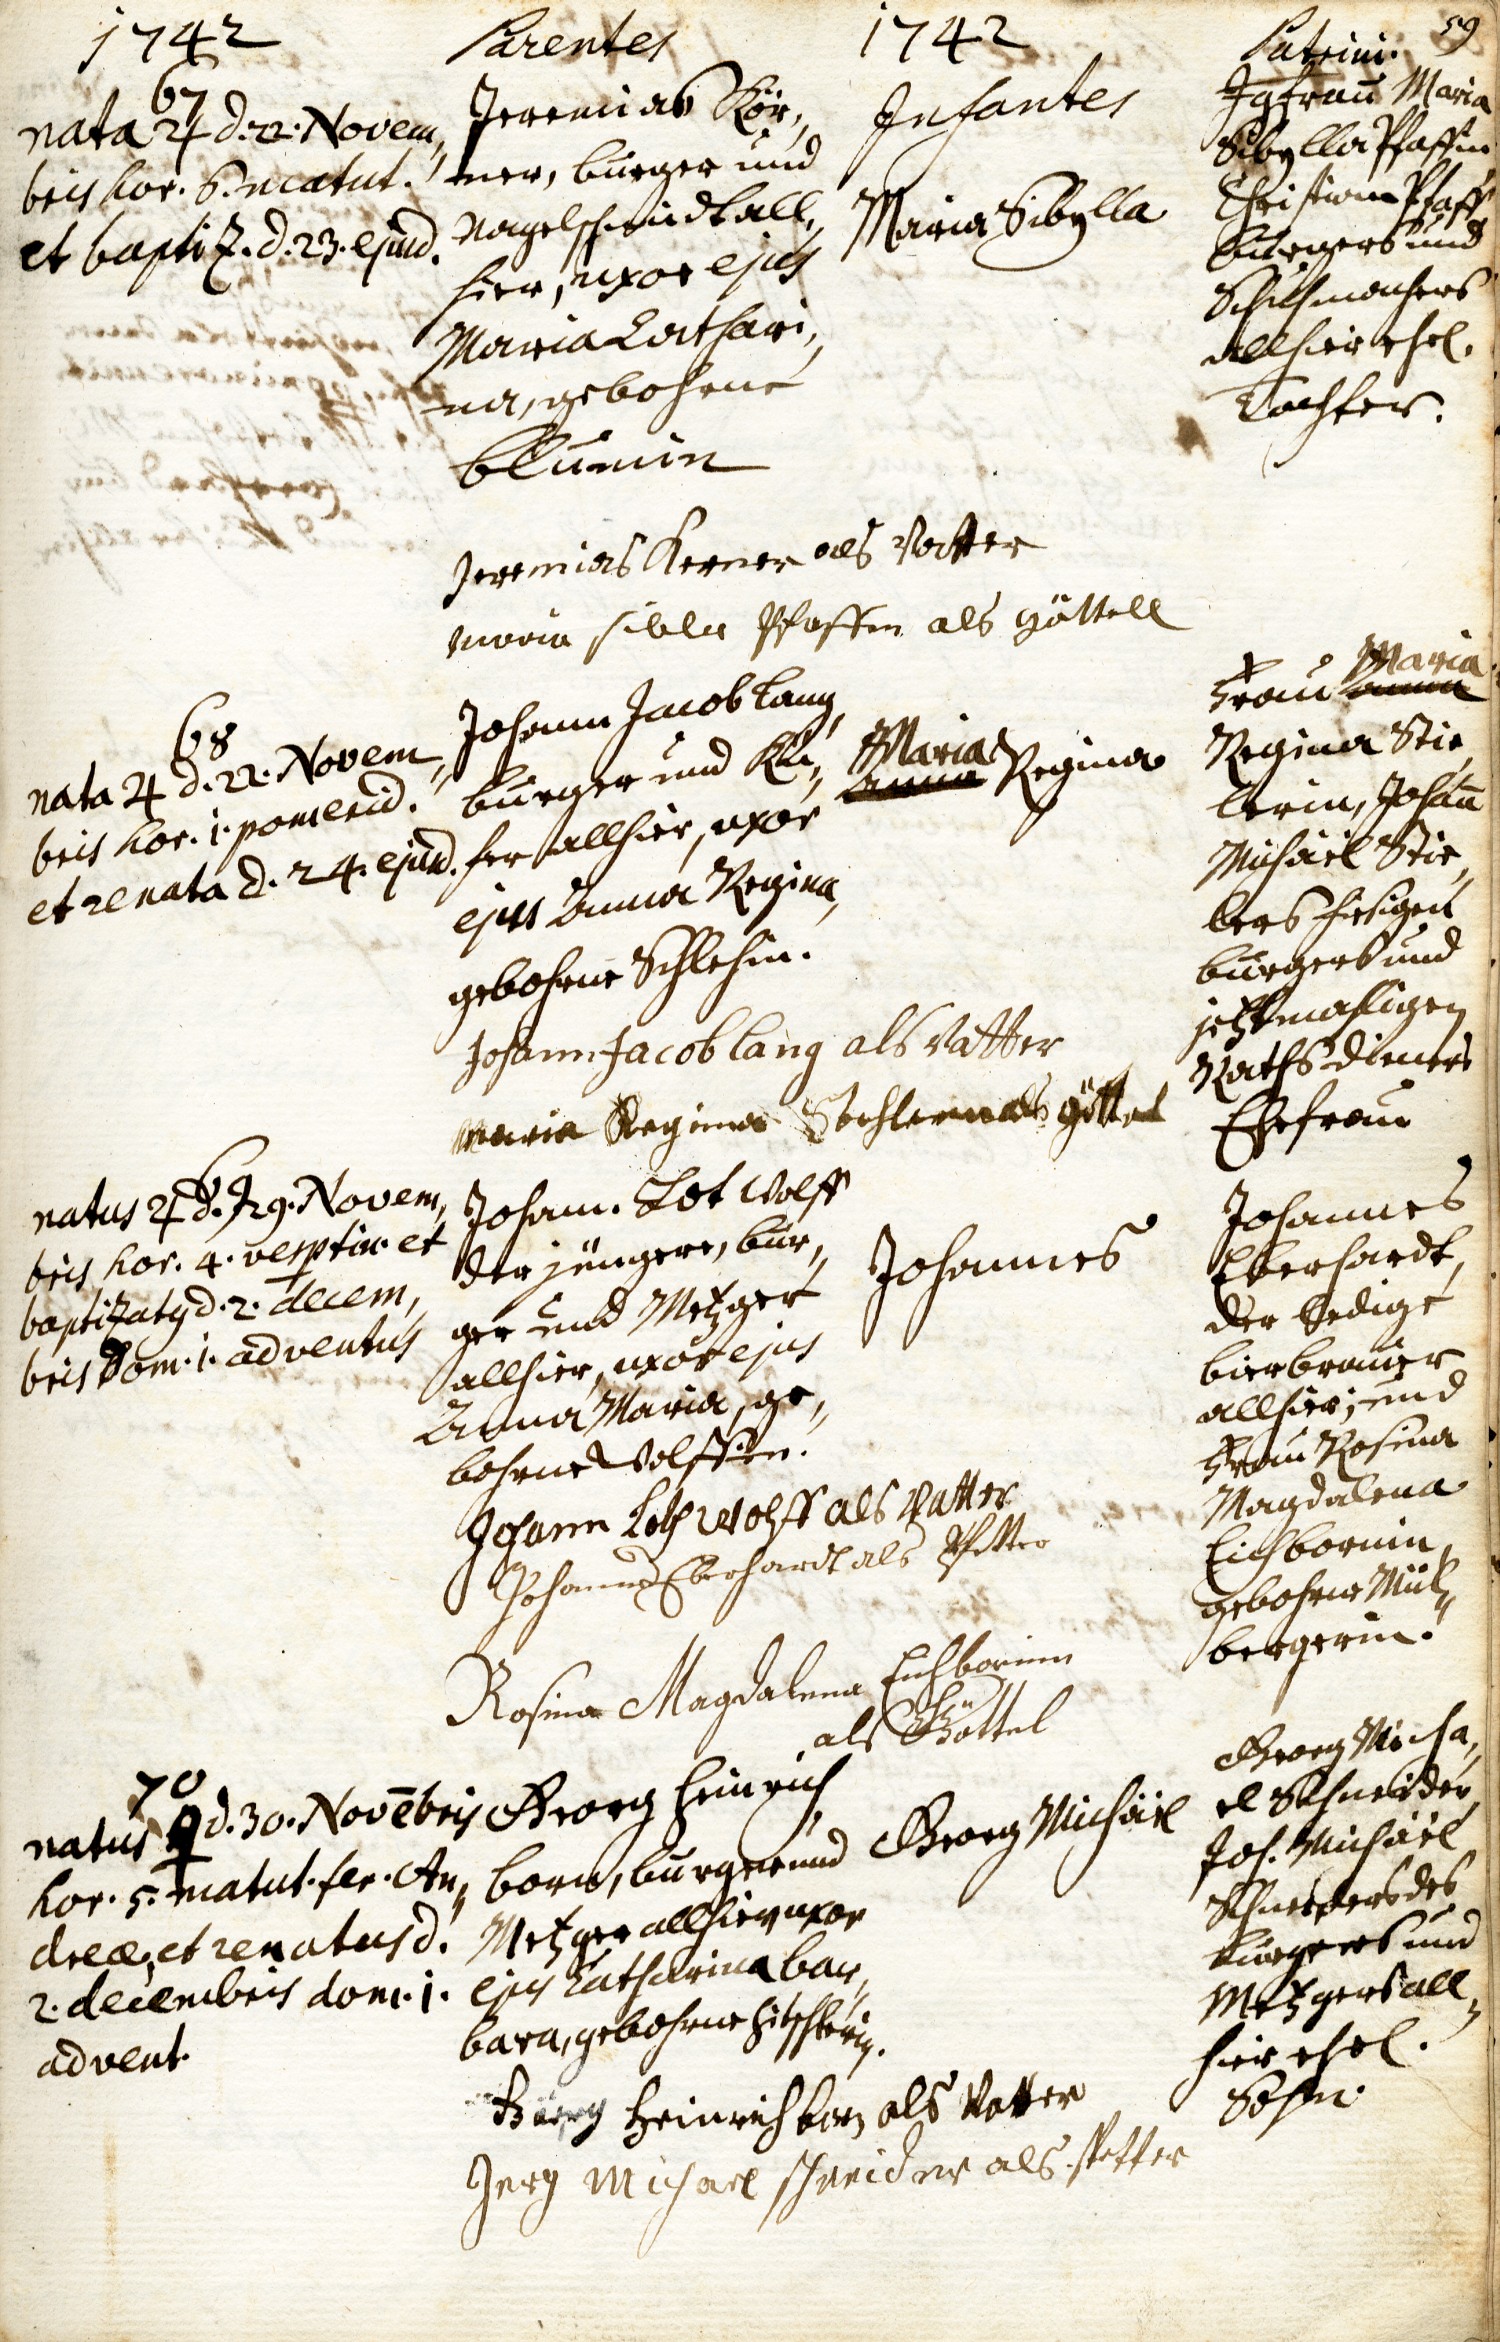 59
1742
67
nata ♃ d. 22. Novem,
bris hor. 6. matut.
et baptiz. d. 23. ejusd.
Parentes
Jeremias Kör,
ner, burger und
Nagelschmidt all,
hier, uxor ejus
Maria Cathari,
na, gebohrne
Blumin
1742
Infantes
Maria Sibylla
Patrini.
Jgfrau Maria
Sibylla Pfaffin
Christian Pfaff
burgers und
Schuhmachers
allhier ehel.
Tochter.
Jeremias Kerner als Vatter
maria sibla Pfaffen als göttell
68
nata ♃ d. 22. Novem,
bris hor. 1. pomerid.
et renata d. 24. ejusd.
Johann Jacob Lang,
burger und Kü,
fer allhier, uxor
ejus Anna Regina,
gebohrne Schlehin.
Maria
Anna Regina
Maria
Frau Anna
Regina Stie,
lerin, Johañ
Michäel Stie,
lers hiesigen
burgers und
jetztmahligen
Raths dieners
Ehefrau
Johann Jacob lang als Vatter
Maria Regina als göttel
69
natus ♃ d. 29. Novem,
bris hor. 4. vesptin. et
baptizatus d. 2. decem,
bris Dom. 1. adventus
Johann. Lot Wolff
der jüngere, bur,
ger und Metzger
allhier, uxor ejus
Anna Maria, ge,
bohrne Wolffin.
Johannes
Johannes
Eberhardt,
der ledige
bierbrauer
allhier; und
Frau Rosina
Magdalena
Eichbornin,
gebohrne Mül,
bergerin.
Johann Loth Wolff als Vatter
Johannes Eberhardt als Pfetter
Rosina Magdalena Eichbornin
als Göttel
70
natus ♀ d. 30. Novēbris
hor. 5. matut. fer. An,
dreæ, et renatus d.
2. decembris dom. 1.
advent.
Georg Heinrich
born, burger und
Metzger allhier, uxor
ejus Catharina bar,
bara, gebohrne Hitschlerin.
Georg Michäel
Georg Micha,
el Schneider,
Joh. Michäel
Schneiders des
burgers und
Metzgers all,
hier ehel.
Sohn.
Heinrich born als Vatter
Jerg Michael schneider als Petter